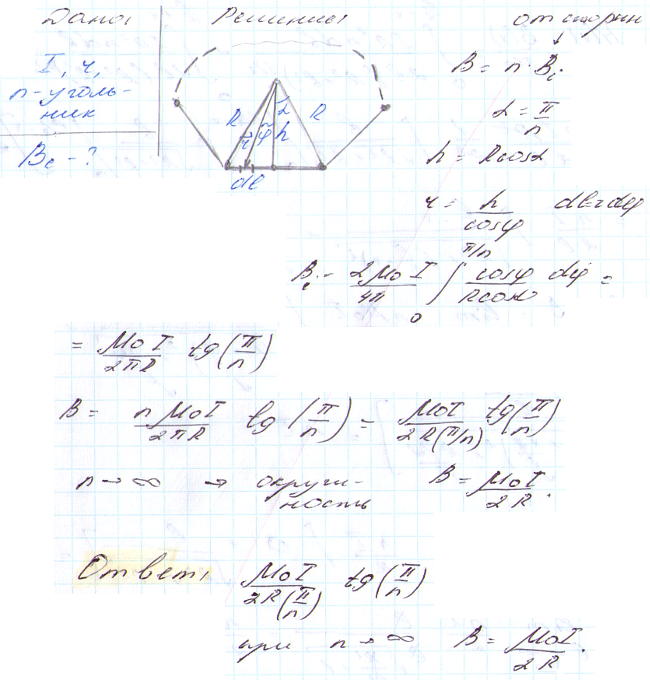 Дано:
I, r,
n-уголь-
ник
Bc - ?
Решение:
R
R
r
φ
α
h
dl
от сторон
B = n · Bi
α = π/n
h = R cosα
r = h/cosφ
Bi = 2μ₀I/4π ∫₀^(π/n) cosφ/(R cosα) dφ =
= μ₀I/2πR tg(π/n)
B = nμ₀I/2πR tg(π/n) = μ₀I/2R(π/n) tg(π/n)
n → ∞ → окруж-
ность B = μ₀I/2R.
Ответ: μ₀I/2R(π/n) tg(π/n)
при n → ∞ B = μ₀I/2R.